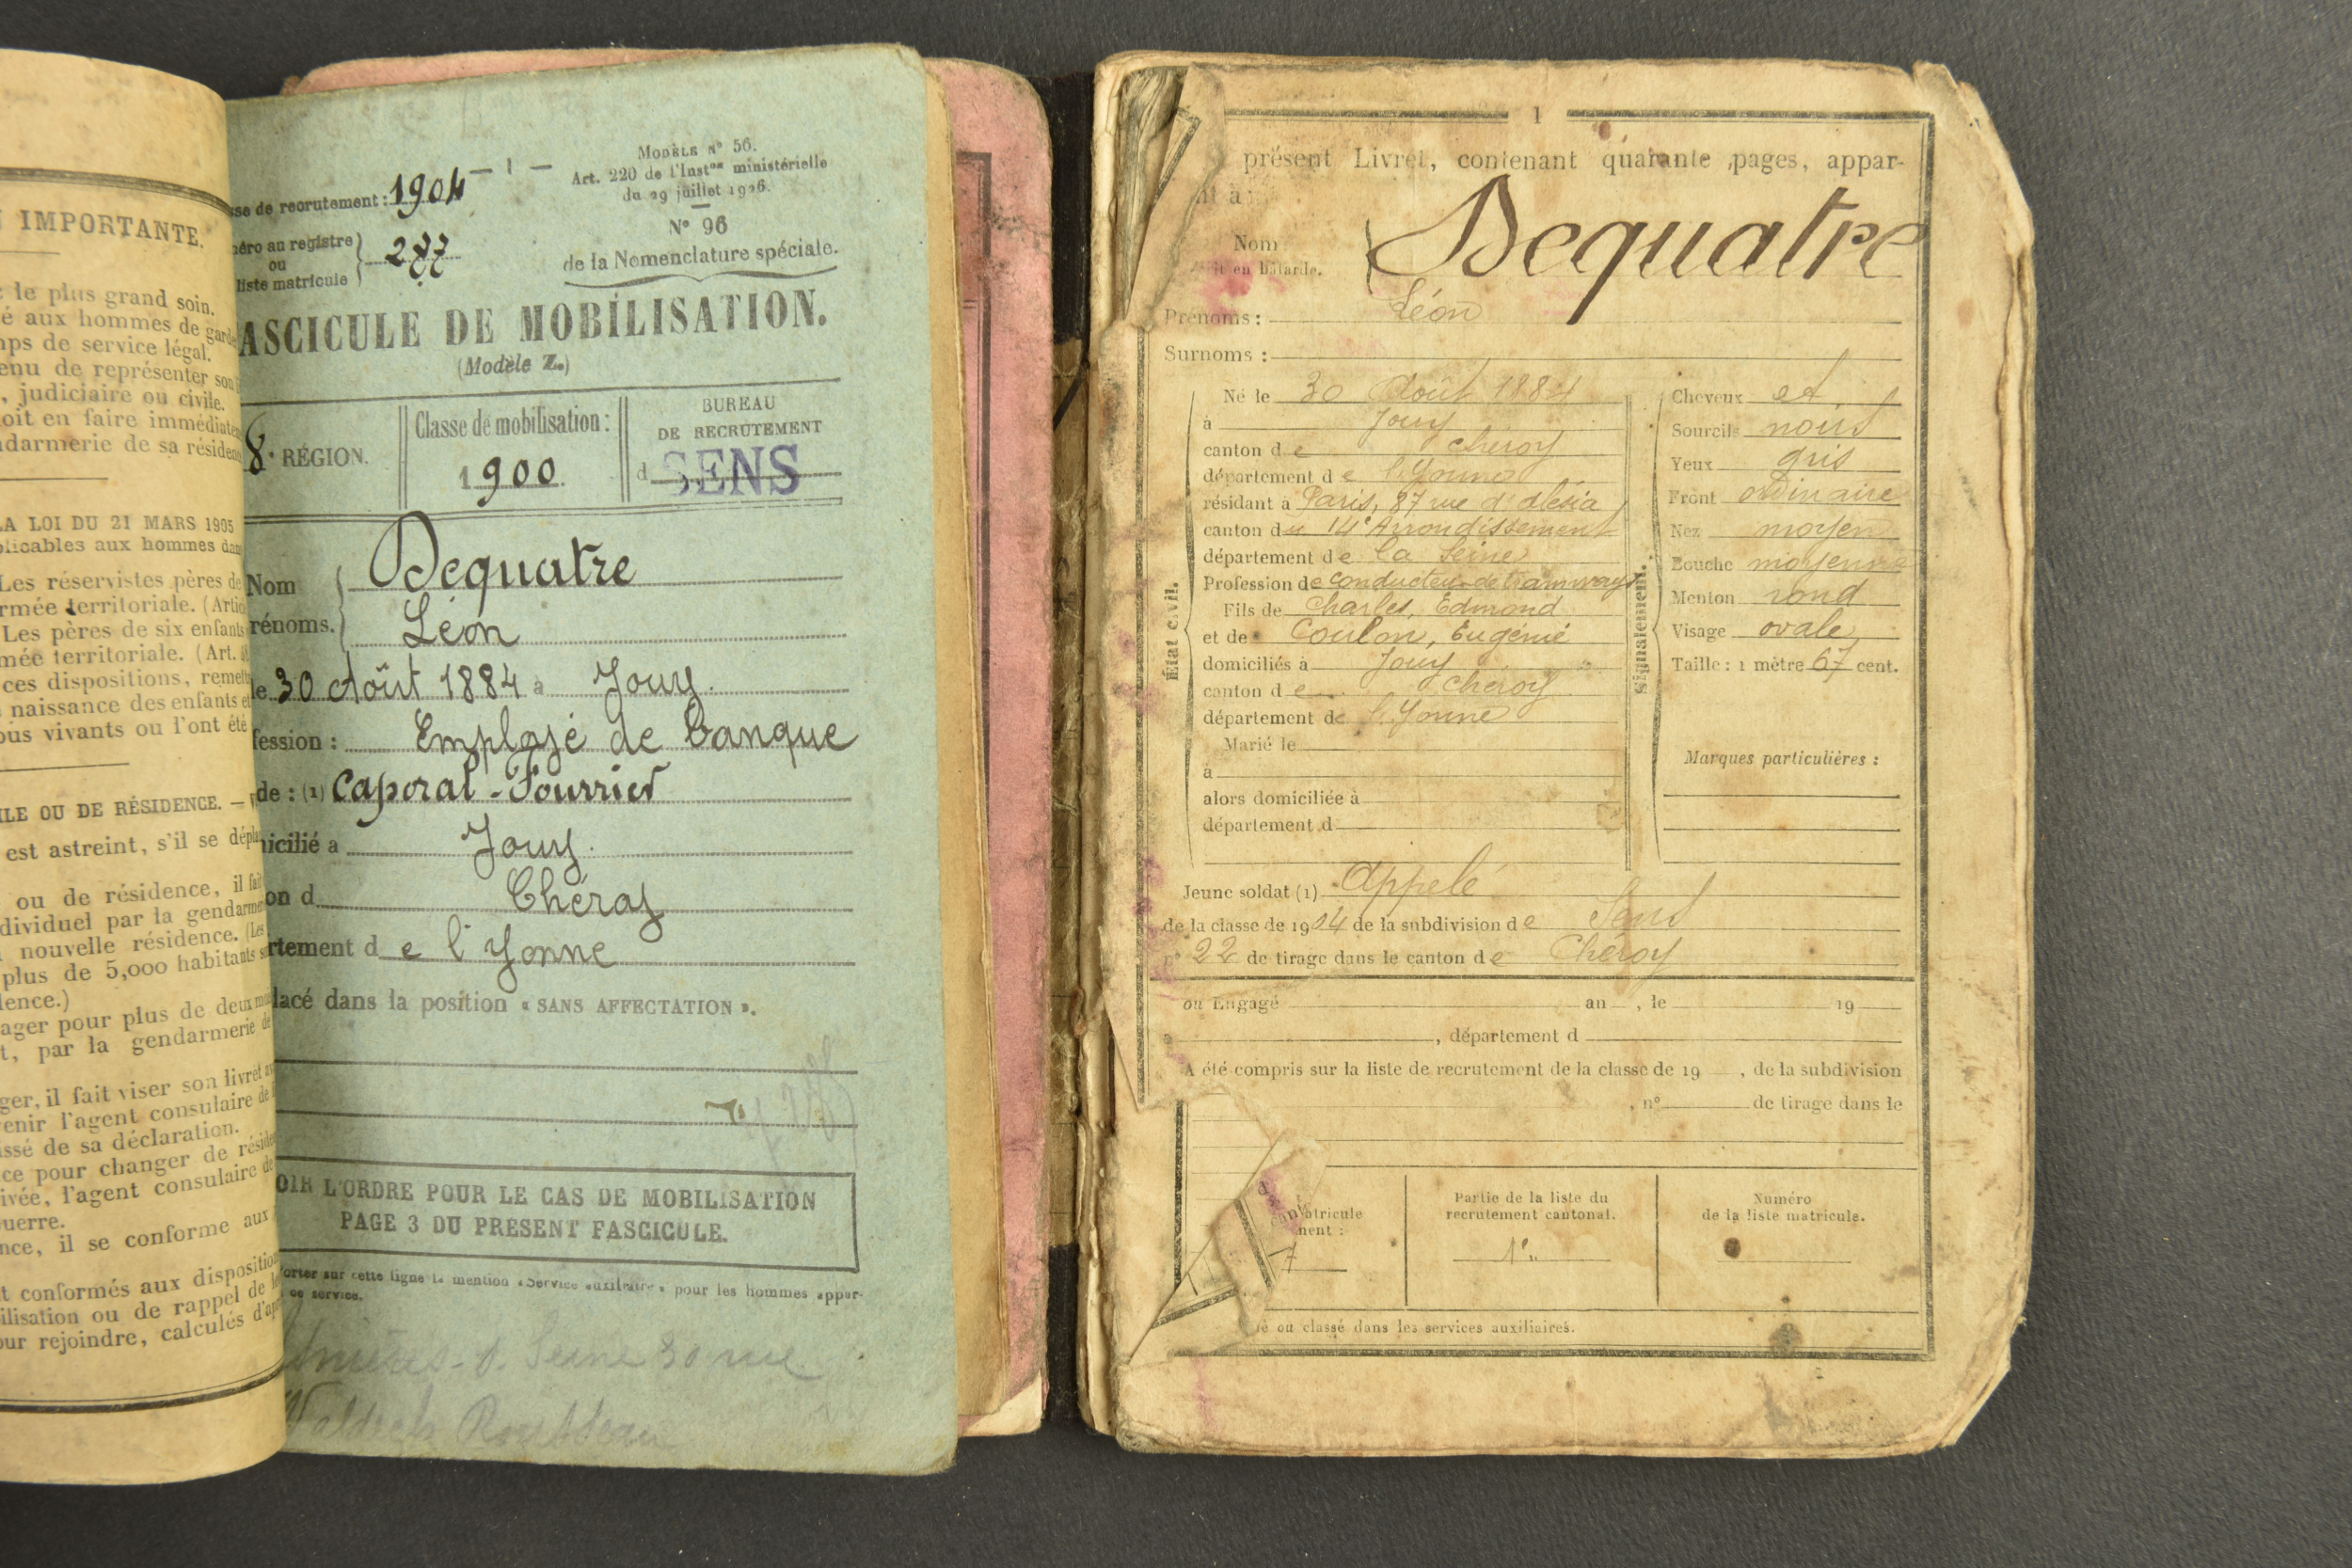 IMPORTANTE.
le plus grand soin.
é aux hommes de garde
ps de service légal.
enu de représenter son
, judiciaire ou civile.
oit en faire immédiate
darmerie de sa résiden
LA LOI DU 21 MARS 1905
plicables aux hommes dan
Les réservistes pères de
rmée territoriale. (Artic
Les pères de six enfants
mée territoriale. (Art.
ces dispositions, remett
naissance des enfants et
ous vivants ou l'ont été
ILE OU DE RÉSIDENCE. —
est astreint, s'il se dépla
ou de résidence, il fait
dividuel par la gendarme
nouvelle résidence. (Les
plus de 5,000 habitants
dence.)
ager pour plus de deux mois
t, par la gendarmerie de
ger, il fait viser son livret av
enir l'agent consulaire de
ssé de sa déclaration.
ce pour changer de réside
ivée, l'agent consulaire de
uerre.
nce, il se conforme aux
t conformés aux disposition
ilisation ou de rappel de
our rejoindre, calculés d'ap
— 1 —
sse de recrutement : 1904
méro au registre
ou
liste matricule
277
MODÈLE N° 56.
Art. 220 de l'Inston ministérielle
du 29 juillet 1926.
N° 96
de la Nomenclature spéciale.
ASCICULE DE MOBILISATION.
(Modèle Z.)
8e RÉGION.
Classe de mobilisation :
1900.
BUREAU
DE RECRUTEMENT
d SENS
Nom Dequatre
rénoms. Léon
le 30 Août 1884 à Jouy.
fession : Employé de banque
de : (1) Caporal-Fourrier
icilié à Jouy.
on d Chéroy
rtement de l'Yonne
lacé dans la position « SANS AFFECTATION ».
OIR L'ORDRE POUR LE CAS DE MOBILISATION
PAGE 3 DU PRÉSENT FASCICULE.
orter sur cette ligne la mention « Service auxiliaire » pour les hommes appar-
ce service.
Seine 30 rue
Waldeck Rousseau
1
présent Livret, contenant quarante pages, appar-
nt à :
Nom
it en bâtarde.
Dequatre
Prénoms : Léon
Surnoms :
État civil.
Né le 30 Août 1884
à Jouy
canton de Chéroy
département de l'Yonne
résidant à Paris, 87 rue d'Alésia
canton du 14e Arrondissement
département de la Seine
Profession de conducteur de tramways
Fils de Charles, Edmond
et de Coulon, Eugénie
domiciliés à Jouy
canton de Chéroy
département de l'Yonne
Marié le
à
alors domiciliée à
département d
Signalement.
Cheveux et
Sourcils noirs
Yeux gris
Front ordinaire
Nez moyen
Bouche moyenne
Menton rond
Visage ovale
Taille : 1 mètre 67 cent.
Marques particulières :
Jeune soldat (1) Appelé
de la classe de 1904 de la subdivision de Sens
n° 22 de tirage dans le canton de Chéroy
ou Engagé an , le 19
à , département d
A été compris sur la liste de recrutement de la classe de 19 , de la subdivision
, n° de tirage dans le
can
matricule
ment :
7
Partie de la liste du
recrutement cantonal.
1re
Numéro
de la liste matricule.
é ou classé dans les services auxiliaires.